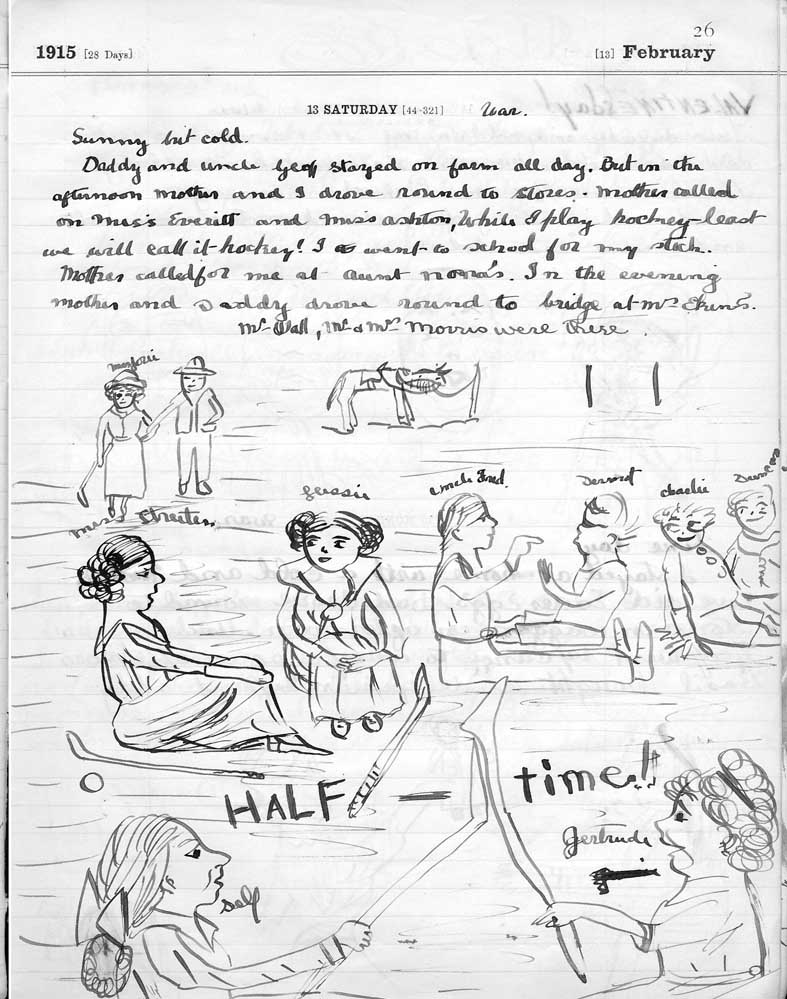 26
1915 [28 Days] [13] February
13 SATURDAY [44-321] War.
Sunny but cold.
Daddy and uncle Geof stayed on farm all day. But in the
afternoon Mother and I drove round to stores. Mother called
on Miss Everitt and Miss Ashton, While I play hockey - least
we will call it hockey! I went to school for my stick.
Mother called for me at Aunt Nona's. In the evening
Mother and Daddy drove round to bridge at Mrs Ekins.
Mr Wall, Mr & Mrs Morris were there.
Marjorie
Miss Streeten
Jessie
Uncle Fred.
Dermot
Charlie
HALF - time!!
Gertrude
self